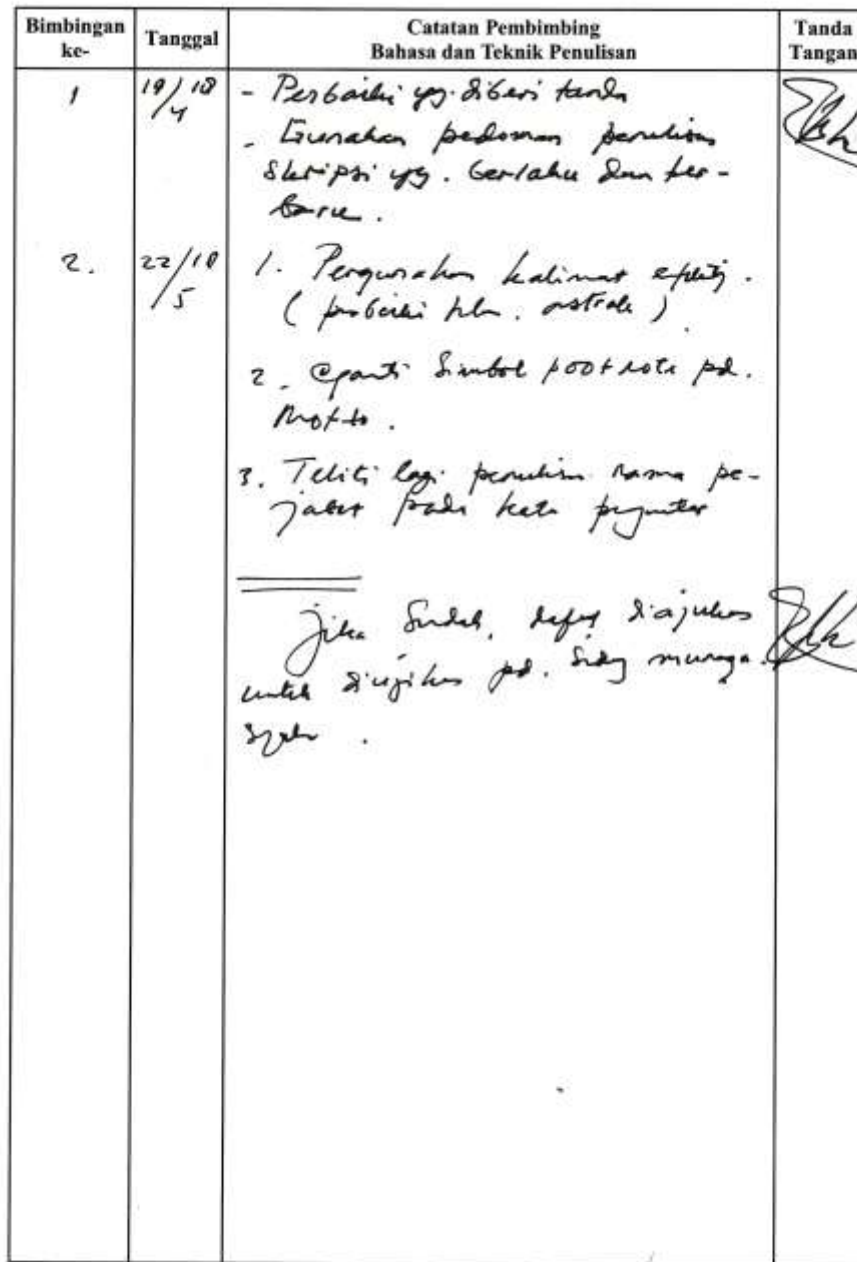 Bimbingan ke-
Tanggal
Catatan Pembimbing
Bahasa dan Teknik Penulisan
Tanda Tangan
1
19/4 18
- Perbaiki yg. diberi tanda
- Gunakan pedoman penulisan
skripsi yg. berlaku dan ter-
baru.
2.
22/5 18
1. Penggunakan kalimat efektif.
( perbaiki hlm. abstrak )
2. Ganti simbol footnote pd.
Motto.
3. Teliti lagi penulisan nama pe-
jabat pada kata pengantar
Jika sudah, dapat diajukan
untuk diujikan pd. sidang munaqa-
syah.